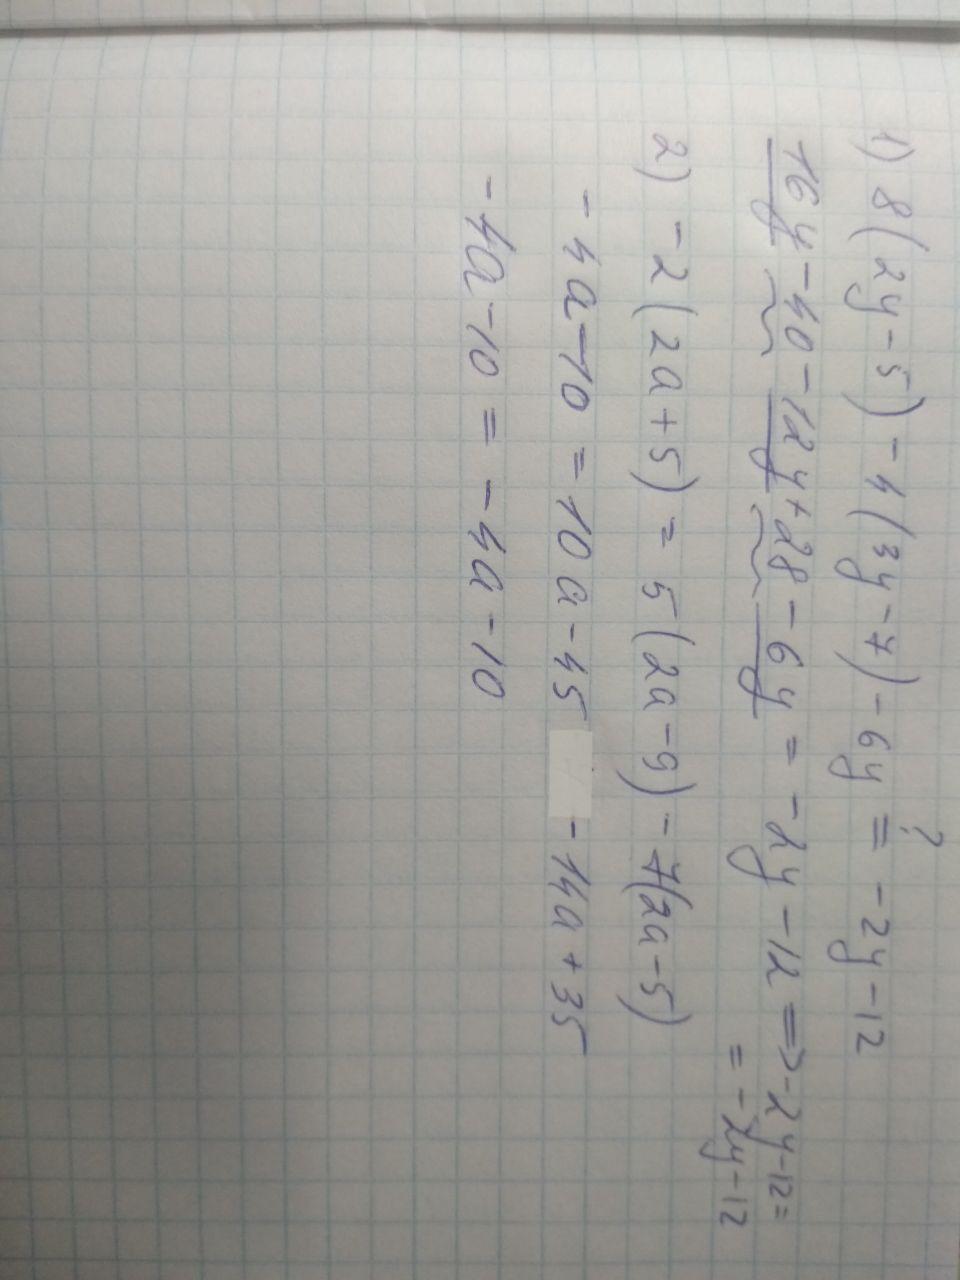 ?
1) 8(2y-5)-4(3y-7)-6y = -2y-12
16y-40-12y+28-6y = -2y-12 => -2y-12 =
= -2y-12
2) -2(2a+5) = 5(2a-9)-7(2a-5)
-4a-10 = 10a-45 -14a+35
-4a-10 = -4a-10